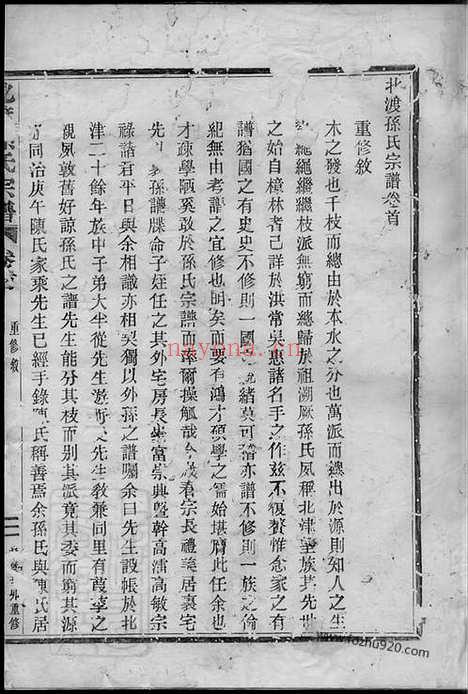 北渡孫氏宗譜卷首
重修敘
木之發也千枝而總由於本水之分也萬派而總出於源則知人之生
繩繩繼繼枝派無窮而總歸於祖溯厥孫氏夙稱北津望族其先世
之始自樟林者已詳於洪常吳惠諸名手之作茲不復贅惟念家之有
譜猶國之有史史不修則一國緒莫可稽亦譜不修則一族之倫
紀無由考譜之宜修也明矣而要有鴻才碩學之儒始堪膺此任余也
才疎學陋奚敢於孫氏宗譜而率爾操觚哉今春宗長禮美居襄宅
先孫譜牒命子姪任之其外宅房長榮富崇典暨幹高濡高敏宗
祿諸君平日與余相識亦相契獨以外孫之譜囑余曰先生設帳於北
津二十餘年族中子弟大半從先生遊先生教兼同里有葭莩之
親夙敦舊好諒孫氏之譜先生能分其枝而別其派竟其委而窮其源
同治庚午陳氏家乘先生已經手錄陳氏稱善焉余孫氏與陳氏居
氏宗譜
卷首
重修敘
外重修
nayona.cn
www.fozhu920.com